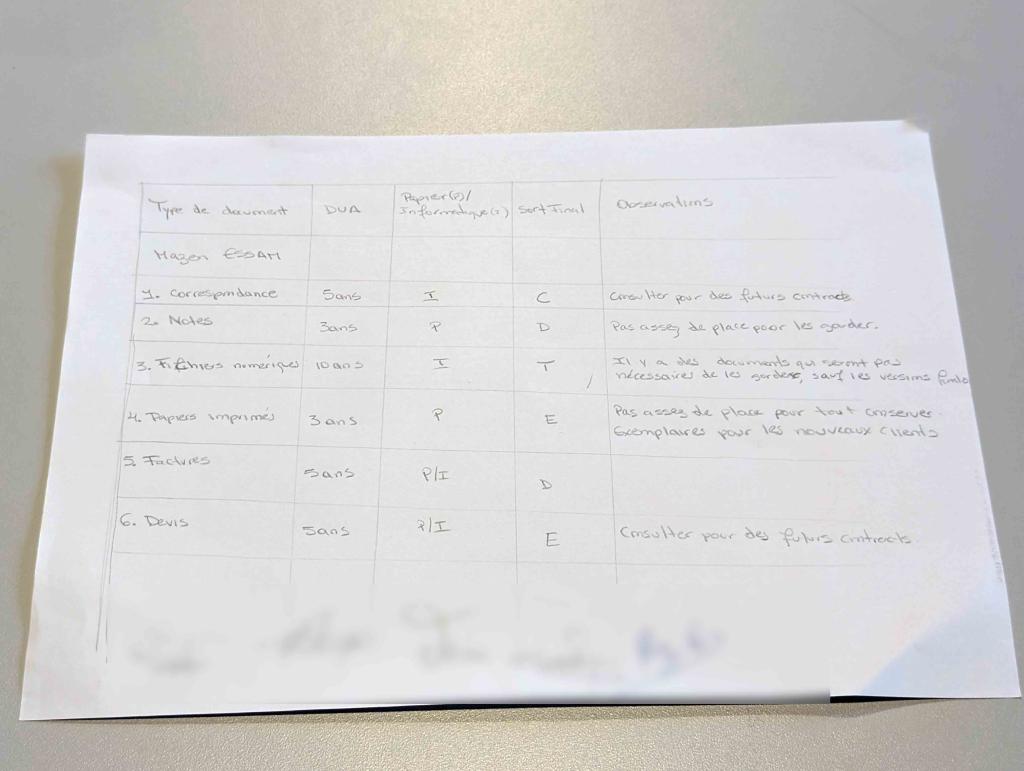 Type de document DUA Papier(P)/ Informatique(I) Sort Final Observations
Mazen ESSAM
1. Correspondance 5ans I C Consulter pour des futurs contracts
2. Notes 3ans P D Pas assez de place poor les garder.
3. Fichiers numériques 10ans I T Il y a des documents qui seront pas
nécessaires de les garder, sauf les versions
4. Papiers imprimés 3ans P E Pas assez de place pour tout conserver.
Exemplaires pour les nouveaux clients
5. Factures 5ans P/I D
6. Devis 5ans P/I E Consulter pour des futurs contracts.